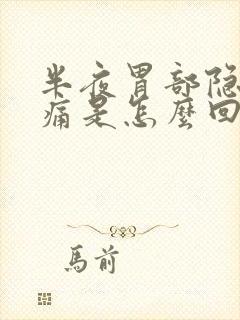 半夜胃部隐
痛是怎麽回
馬前